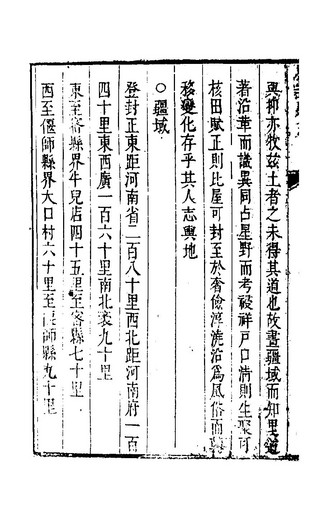 興抑亦牧兹土者之未得其道也故畫疆域而知里道
著沿革而識異同占星野而考祲祥戸口清則生聚可
核田賦正則比屋可封至於奢儉淳漓沿爲風俗而轉
移變化存乎其人志輿地
○疆域
登封正東距河南省二百八十里西北距河南府一百
四十里東西廣一百六十里南北袤九十里
東至密縣界牛兒店四十五里至密縣七十里
西至偃師縣界大口村六十里至偃師縣九十里